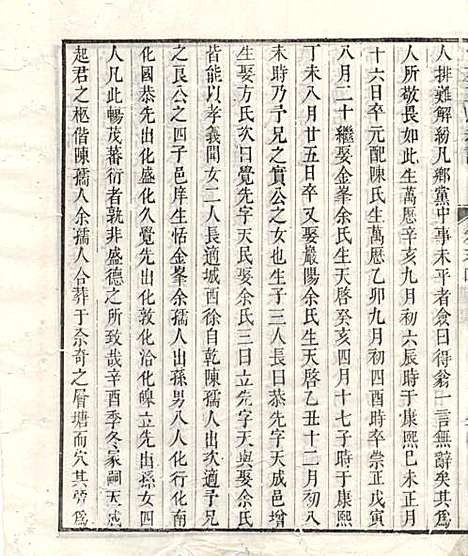 人排難解紛凡鄉黨中事未平者僉曰得翁一言無辭矣其為
人所敬畏如此生萬歷辛亥九月初六辰時于康熙己未正月
十六日卒元配陳氏生萬歷乙卯九月初四酉時卒崇正戊寅
八月二十繼娶金峯余氏生天啓癸亥四月十七子時于康熙
丁未八月廿五日卒又娶巖陽余氏生天啓乙丑十二月初八
未時乃予兄之實公之女也生子三人長曰恭先字天成邑增
生娶方氏次曰覺先字天民娶余氏三曰立先字天與娶余氏
皆能以孝義聞女二人長適城西徐自乾陳孺人出次適予兄
之良公之四子邑庠生恬金峯余孺人出孫男八人化行化南
化國恭先出盛化久覺先出化敦化洽化皥立先出孫女四
人凡此暢茂蕃衍者孰非盛德之所致哉辛酉季冬冢嗣天成
起君之柩偕陳孺人余孺人合葬于余奇之屑塘而穴其旁為